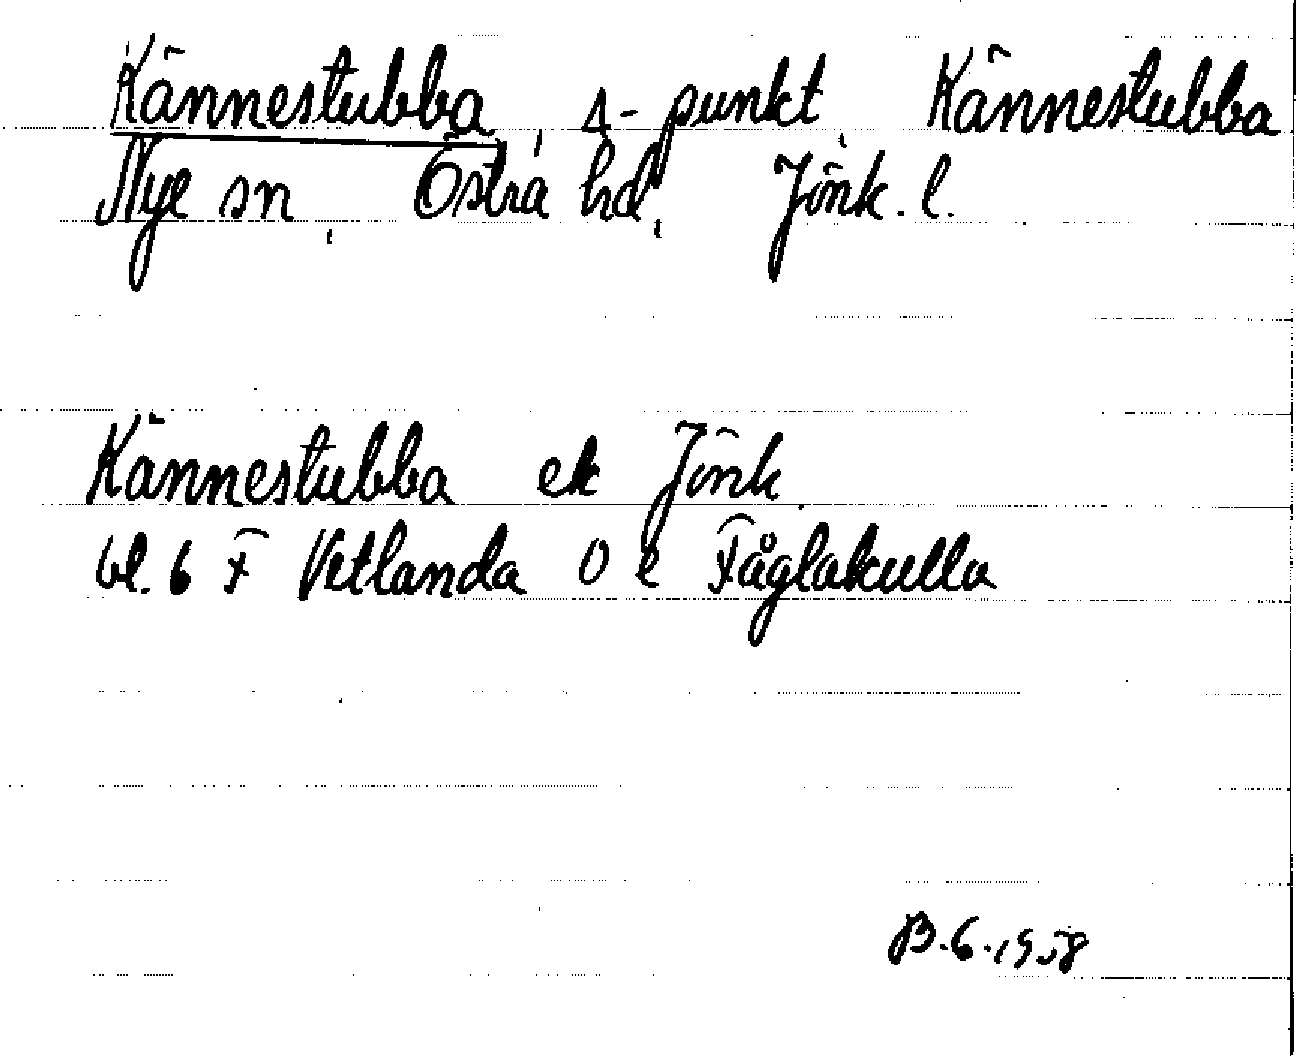 Kännestubba, Δ-punkt, Kännestubba
Nye sn, Östra hd, Jönk. l.
Kännestubba ek Jönk
bl. 6 F Vetlanda O e Fåglakulla
B. 6. 1958